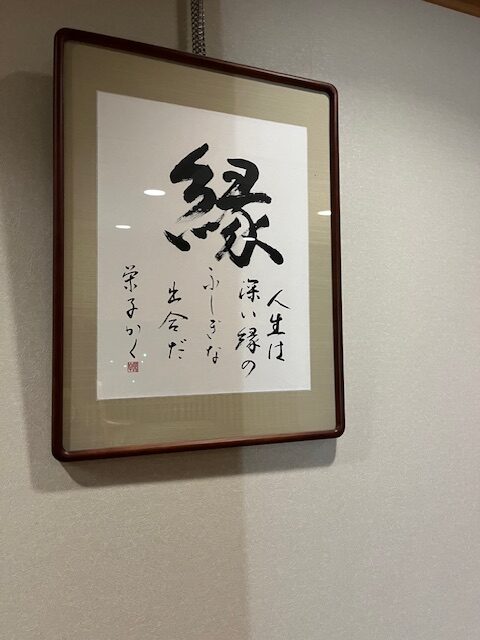 縁
人生は
深い縁の
ふしぎな
出合だ
栄子かく